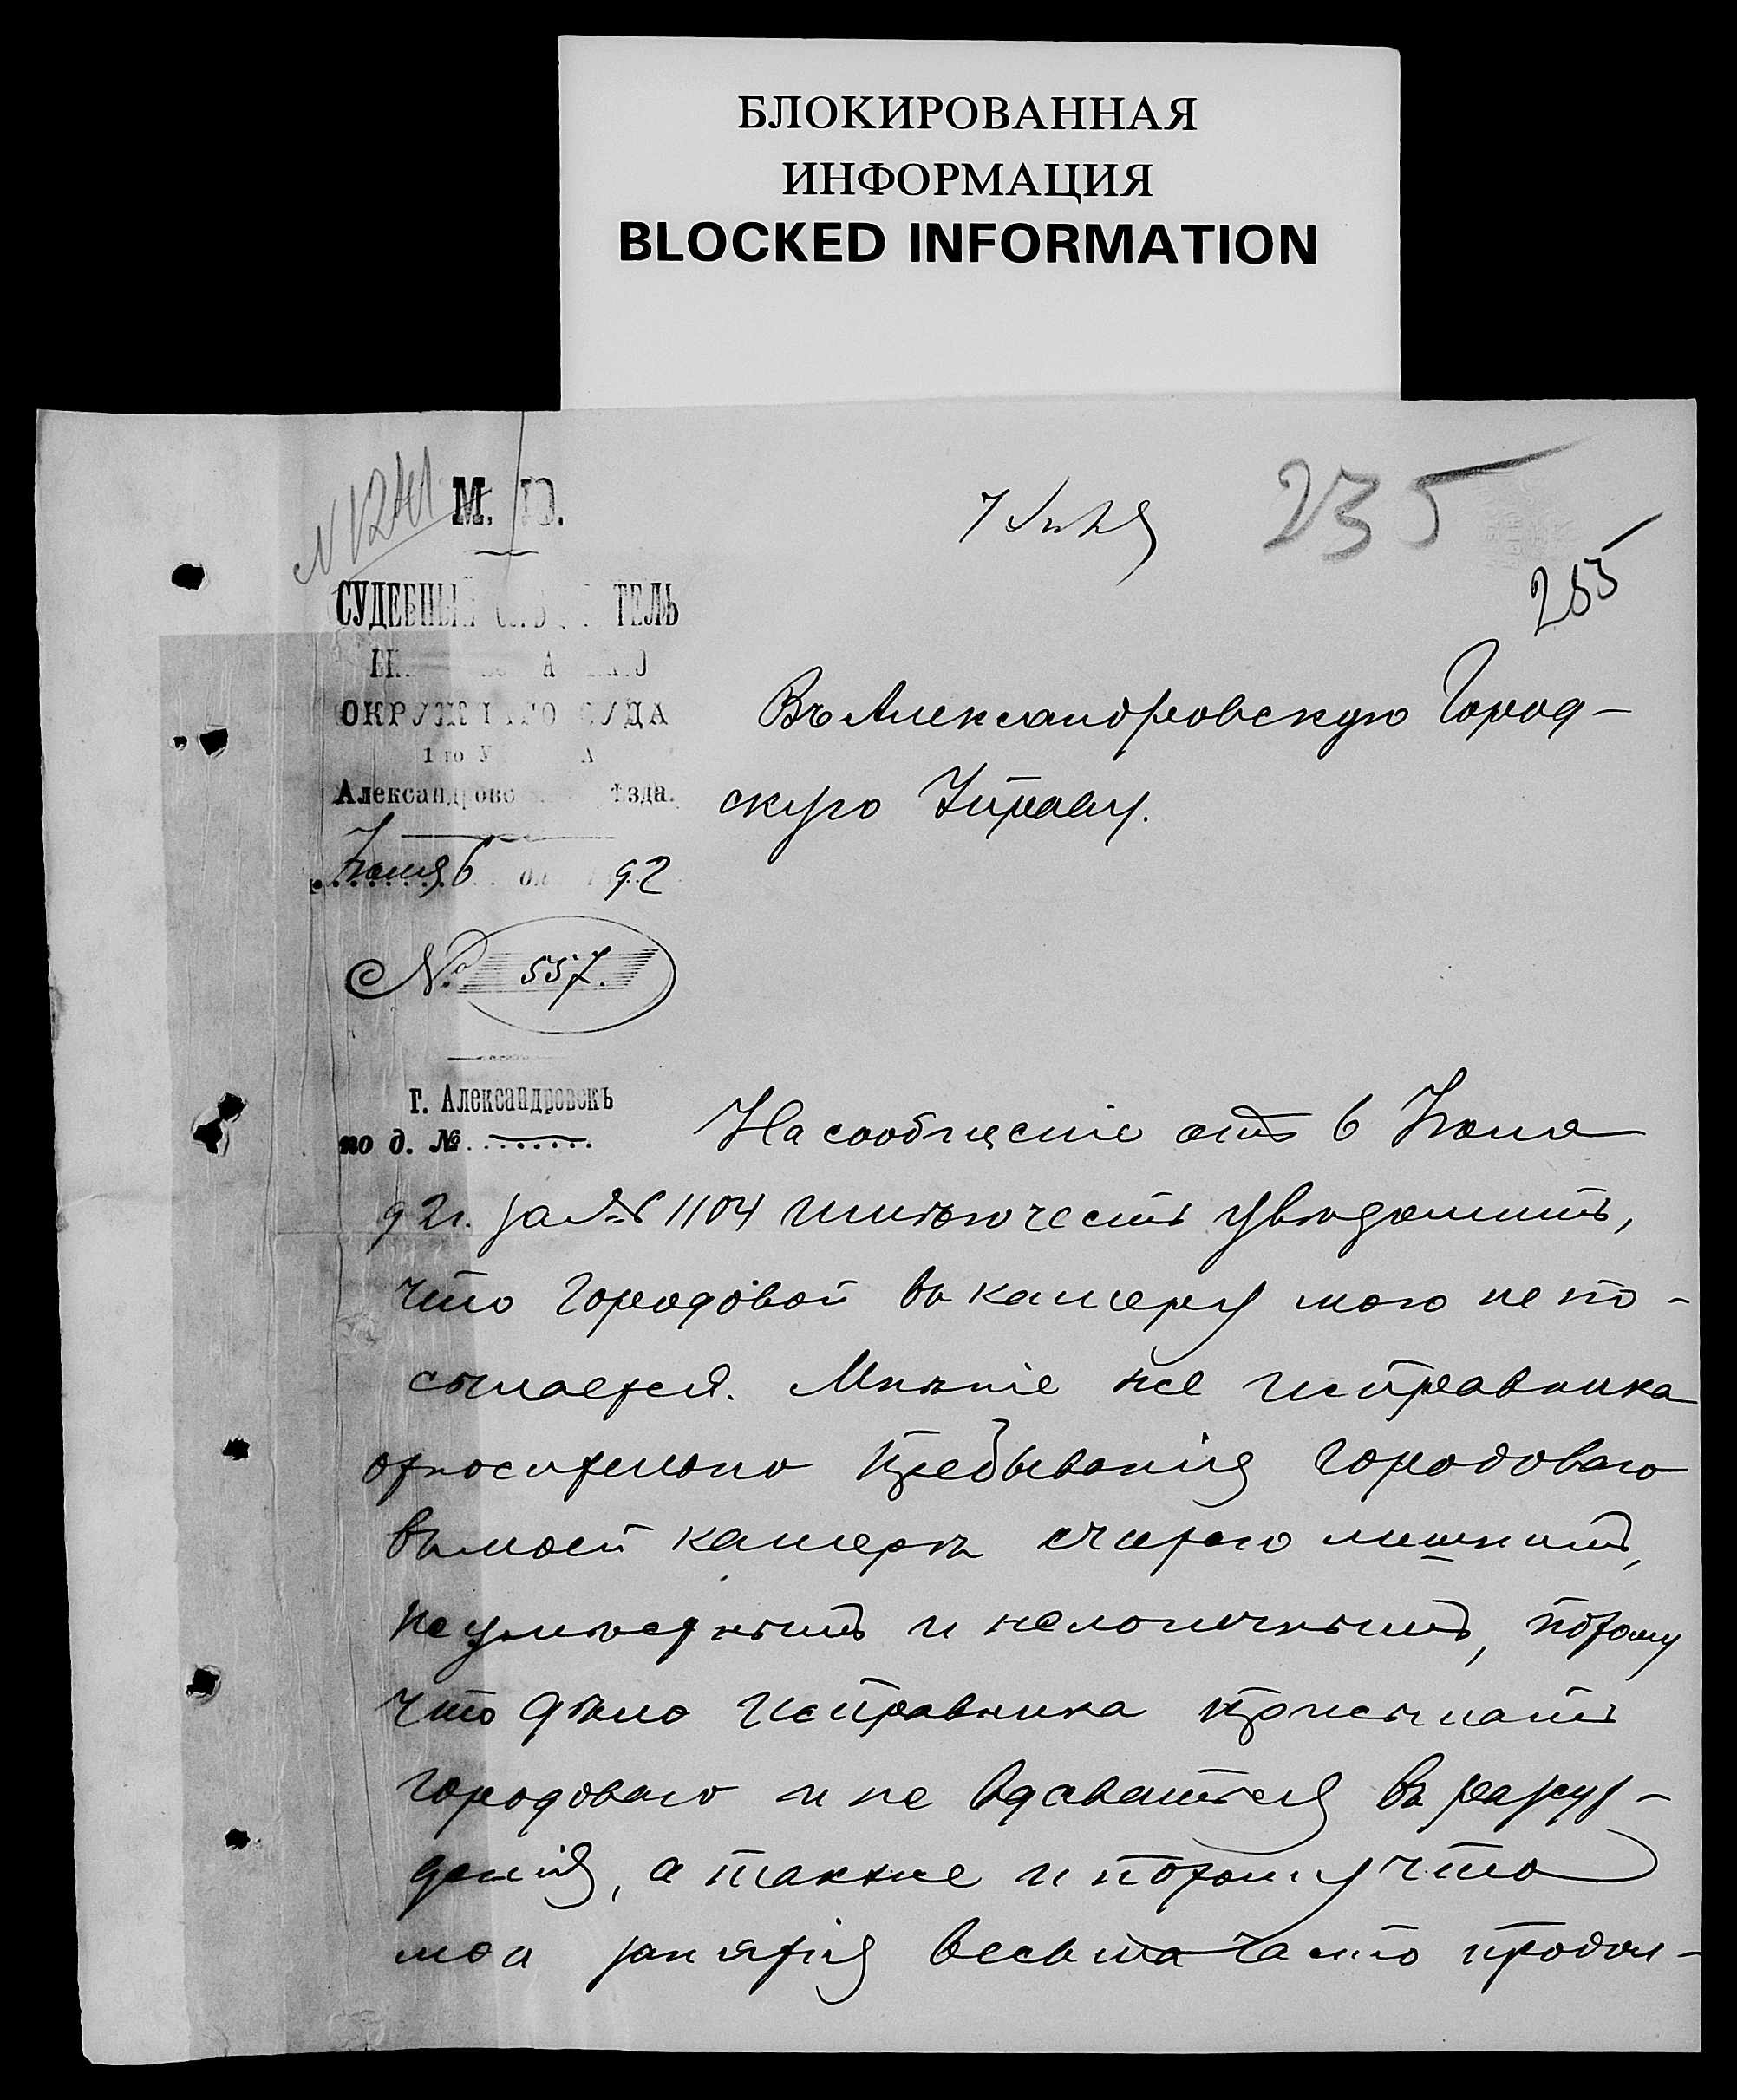 БЛОКИРОВАННАЯ
ИНФОРМАЦИЯ
BLOCKED INFORMATION
N 1241
М. Ю.
7
235
235
СУДЕБНЫЙ
ОКРУЖНАГО СУДА
1 го У
Александровс ѣзда.
Іюня 6 92
№ 557.
г. Александровскъ
по д. №
Въ Александровскую Город-
скую Управу.
На сообщеніе отъ 6 Іюня
92 г. за № 1104 имѣю честь увѣдомить,
что городовой въ камеру мою не по-
сылается. Мнѣніе же исправника
относительно пребыванія городоваго
въ моей камерѣ считаю лишнимъ,
неумѣстнымъ и нелогичнымъ, потому
что дѣло исправника присылать
городоваго и не вдаваться въ разсуж-
денія, а также и потому что
мои занятія весьма часто продол-